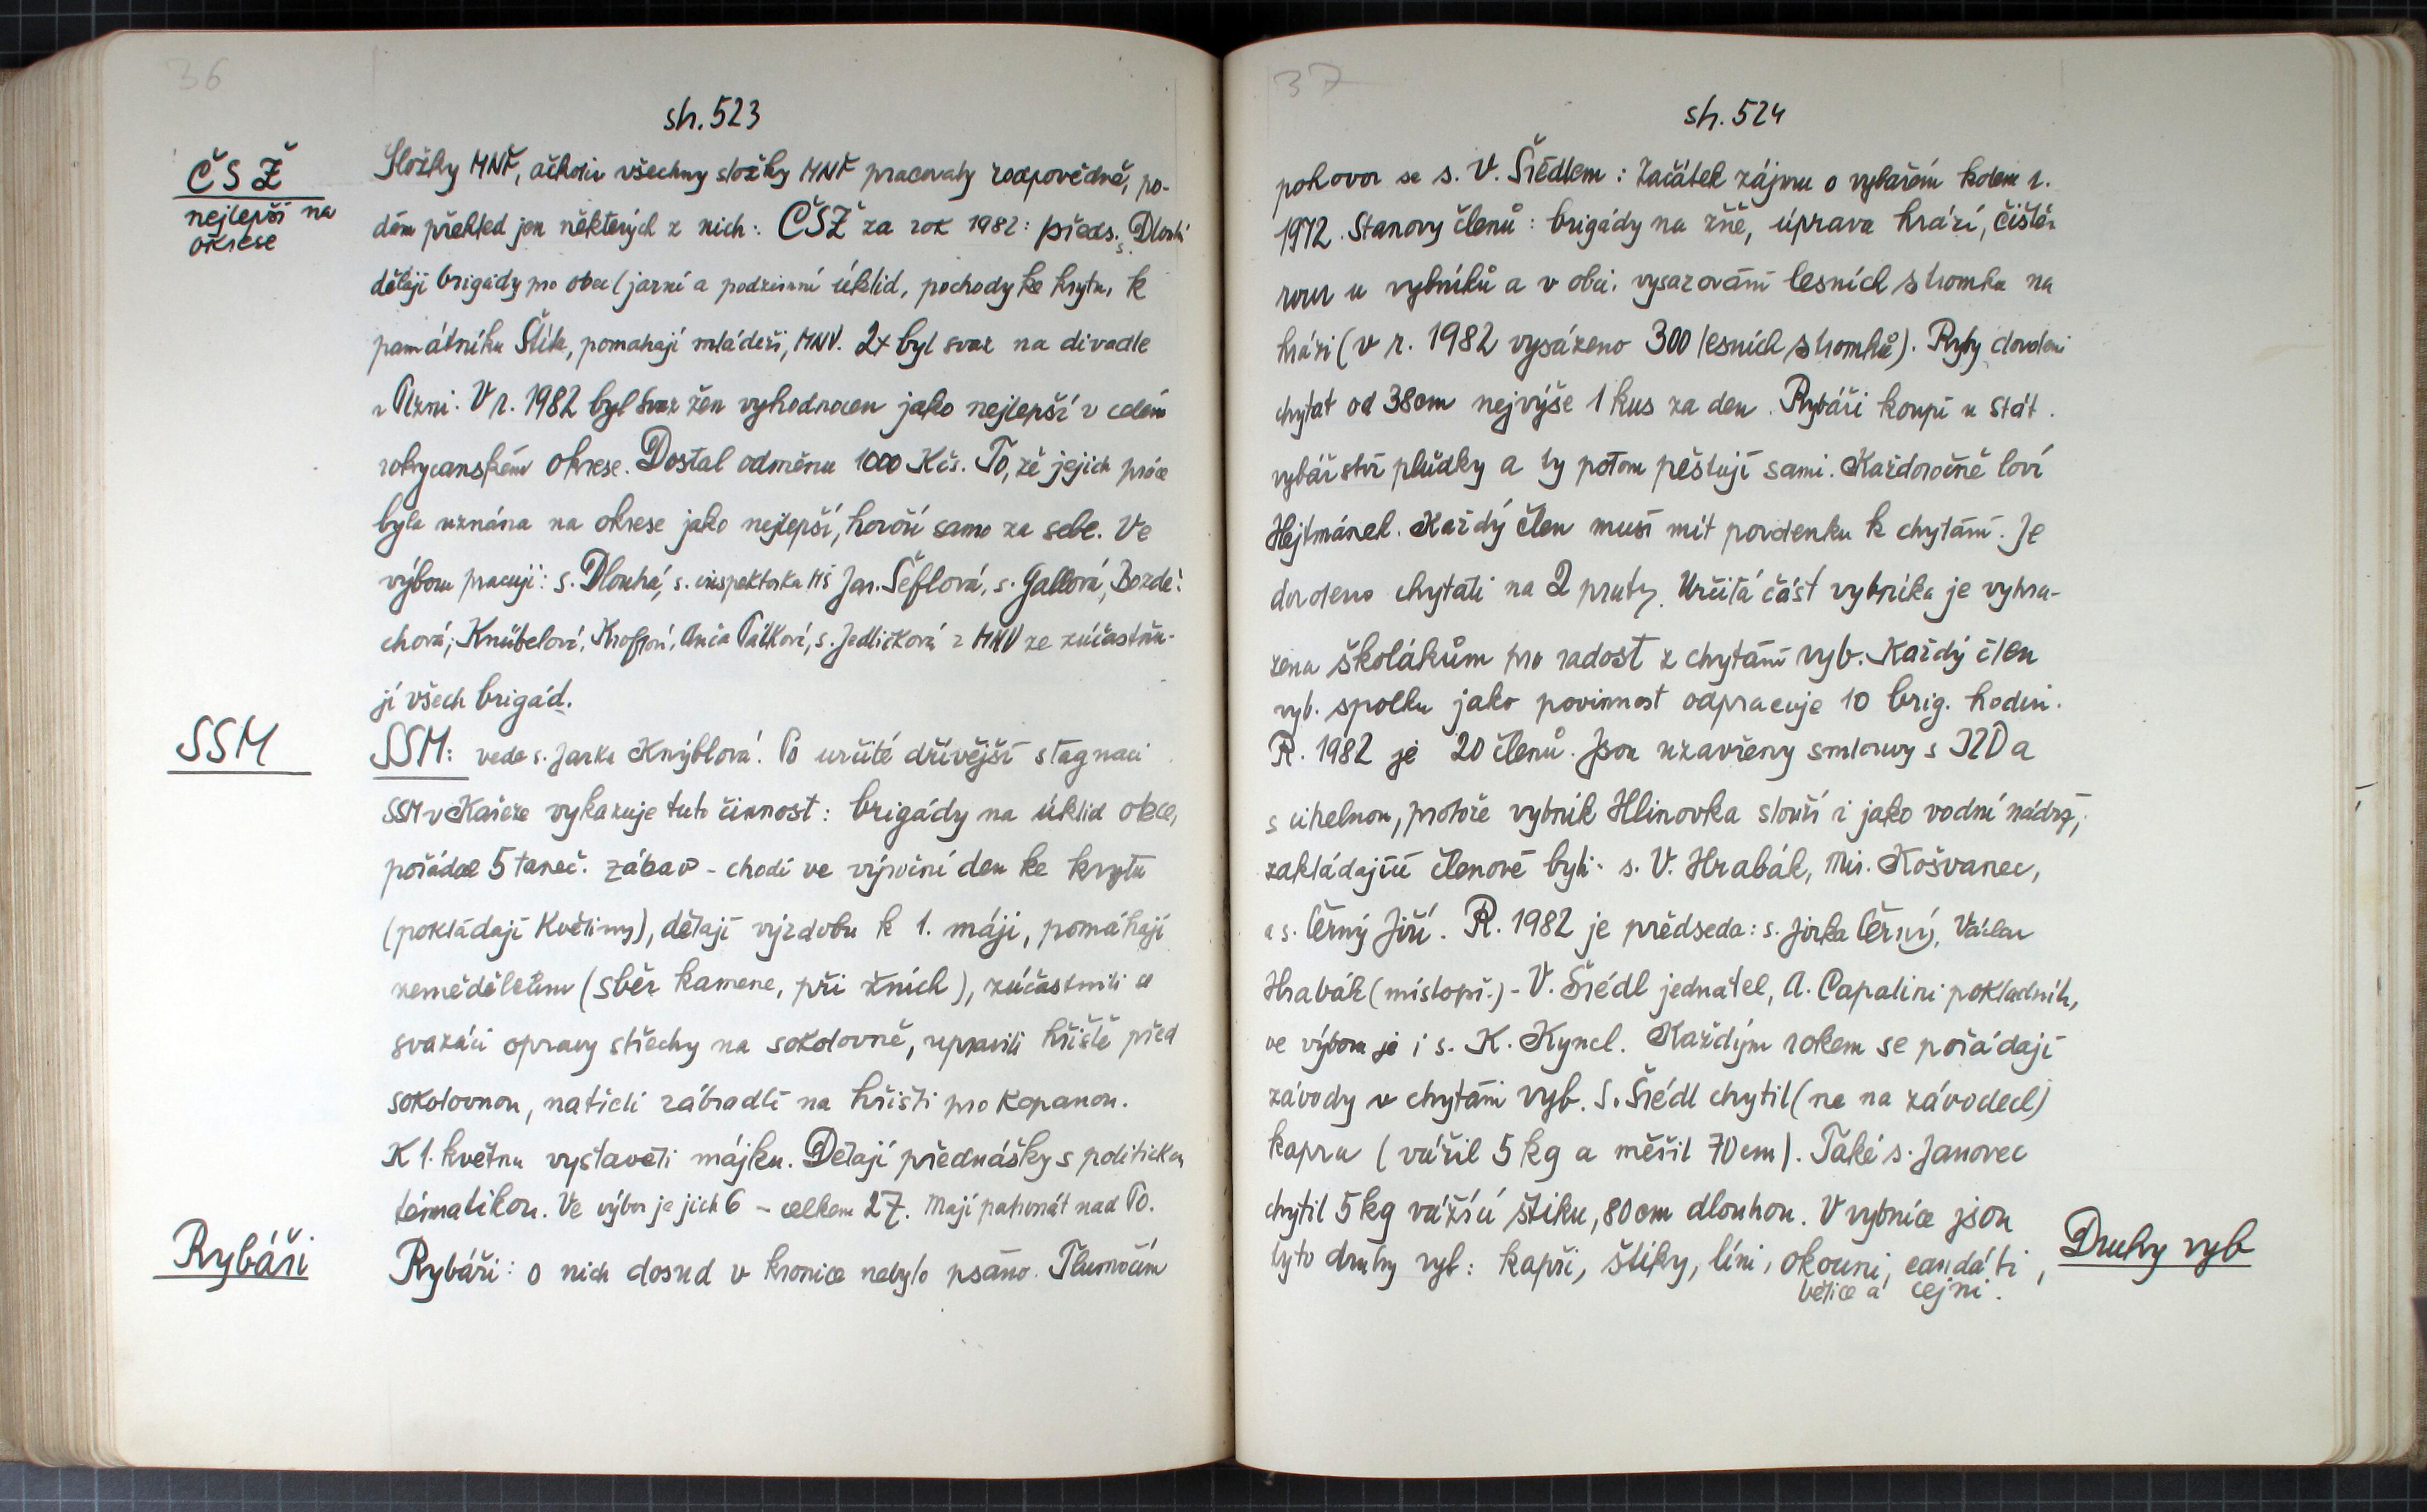 36
str. 523
ČSŽ
nejlepší na
okrese
Složky MNF, ačkoliv všechny složky MNF pracovaly zodpovědně, po-
dám přehled jen některých z nich: ČSŽ za rok 1982: předs. s. Dlouhá
dělají brigády pro obec (jarní a podzimní úklid, pochody ke krytu, k
památníku Štítě, pomahají mládeži, MNV. 2x byl svaz na divadle
v Plzni. V r. 1982 byl svaz žen vyhodnocen jako nejlepší v celém
rokycanském okrese. Dostal odměnu 1000 Kčs. To, že jejich práce
byla uznána na okrese jako nejlepší, hovoří samo za sebe. Ve
výboru pracují: s. Dlouhá, s. inspektorka MŠ Jar. Šeflová, s. Gallová, Bozdě-
chová, Knübelová, Kroftová, Anča Pátková, s. Jedličková z MNV se zúčastňu-
jí všech brigád.
SSM
SSM: vede s. Jarka Knýblová. Po určité dřívější stagnaci
SSM v Kařeze vykazuje tuto činnost: brigády na úklid obce,
pořádal 5 taneč. zábav - chodí ve výroční den ke krytu
(pokládají květiny), dělají výzdobu k 1. máji, pomáhají
zemědělcům (sběr kamene, při žních), zúčastnili se
svazáci opravy střechy na sokolovně, upravili hřiště před
sokolovnou, natřeli zábradlí na hřišti pro kopanou.
K 1. květnu vystavěli májku. Dělají přednášky s politickou
tématikou. Ve výboru je jich 6 - celkem 27. Mají patronát nad PO.
Rybáři
Rybáři: o nich dosud v kronice nebylo psáno. Tlumočím
37
str. 524
pohovor se s. V. Šrédlem: Začátek zájmu o rybaření kolem r.
1972. Stanovy členů: brigády na žně, úprava hrází, čištění
rour u rybníků a v obci. vysazování lesních stromků na
hrázi (v r. 1982 vysázeno 300 lesních stromků). Ryby dovoleni
chytat od 38cm nejvýše 1 kus za den. Rybáři koupí u Stát.
rybářství plůdky a ty potom pěstují sami. Každoročně loví
Hejtmánek. Každý člen musí mít povolenku k chytání. Je
dovoleno chytati na 2 pruty. Určitá část rybníka je vyhra-
zena školákům pro radost z chytání ryb. Každý člen
ryb. spolku jako povinnost odpracuje 10 brig. hodin.
R. 1982 je 20 členů. Jsou uzavřeny smlouvy s JZD a
s cihelnou, protože rybník Hlinovka slouží i jako vodní nádrž,
zakládající členové byli: s. V. Hrabák, Mir. Košvanec,
a s. Černý Jiří. R. 1982 je předseda: s. Jirka Černý, Václav
Hrabák (místopř.) - V. Šrédl jednatel, A. Capalini pokladník,
ve výboru je i s. K. Kyncl. Každým rokem se pořádají
závody v chytání ryb. S. Šrédl chytil (ne na závodech)
kapra (vážil 5 kg a měřil 70 cm). Také s. Janovec
chytil 5 kg vážící štiku, 80 cm dlouhou. V rybníce jsou
tyto druhy ryb: kapři, štiky, líni, okouni, candáti,
bělice a cejni.
Druhy ryb